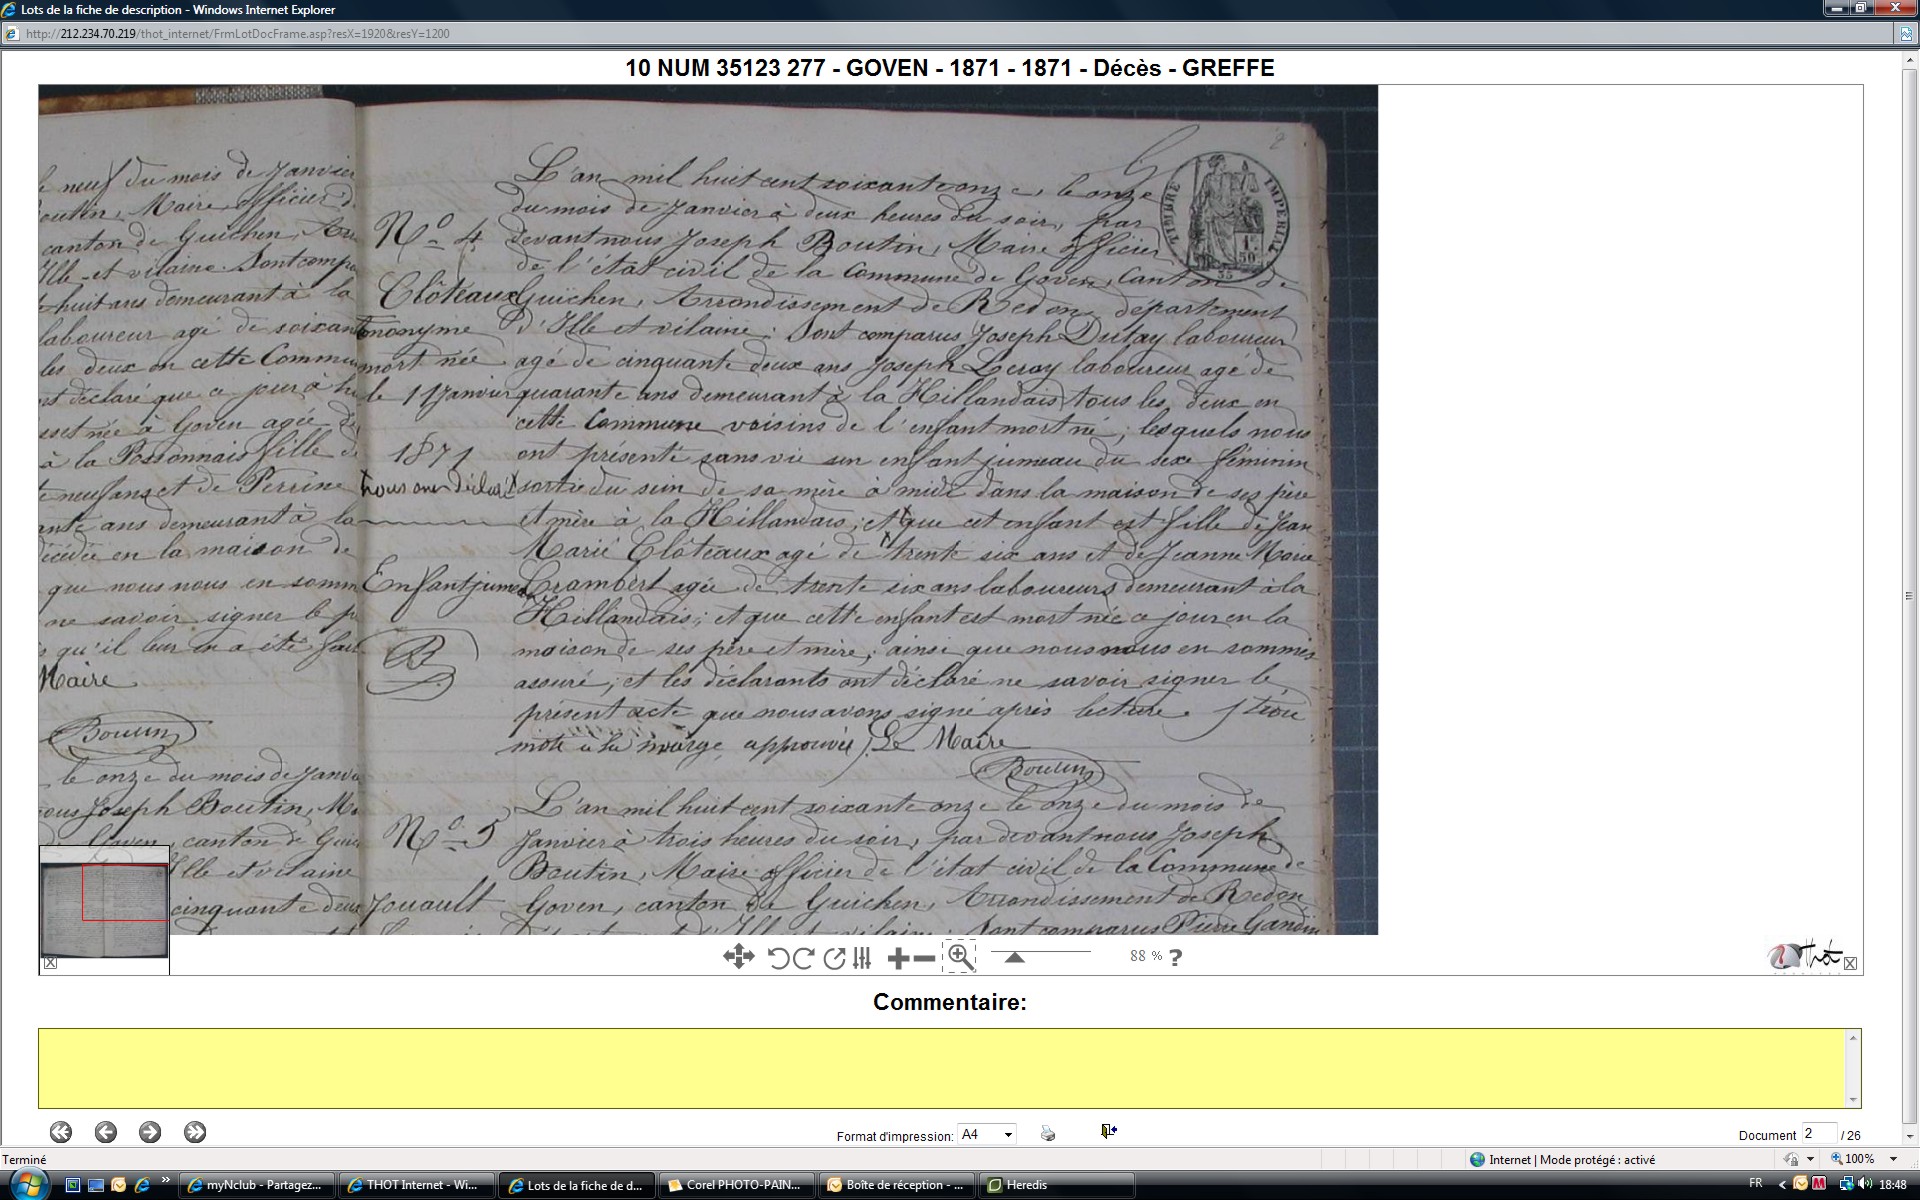 Lots de la fiche de description - Windows Internet Explorer
http://212.234.70.219/thot_internet/FrmLotDocFrame.asp?resX=1920&resY=1200
10 NUM 35123 277 - GOVEN - 1871 - 1871 - Décès - GREFFE
le neuf du mois de Janvier
Boutin, Maire, officier d
canton de Guichen, Arr
Ille-et-vilaine. Sont compa
huit ans demeurant à la
laboureur agé de soixant
les deux en cette Commun
déclaré que ce jour à
née à Goven agée de
à la Possonnais fille de
neuf ans et de Perrine
ans demeurant à la
décédée en la maison de
que nous nous en somm
ne savoir signer le pr
qu'il leur en a été fait
Maire
Boutin
le onze du mois de Janvi
nous Joseph Boutin, Ma
Goven, canton de Guic
Ille et vilaine
cinquante deux
No 4
Clôteaux
anonyme
mort née
le 11 Janvier
1871
Enfant jumeau
B
L'an mil huit cent soixante onze, le onze
du mois de Janvier à deux heures du soir, par
devant nous Joseph Boutin, Maire officier
de l'état civil de la Commune de Goven, Canton de
Guichen, Arrondissement de Redon, département
d'Ille et vilaine. Sont comparus Joseph Dutay laboureur
agé de cinquante deux ans Joseph Leray laboureur agé de
quarante ans demeurant à la Hillandais tous les deux en
cette Commune voisins de l'enfant mort né, lesquels nous
ont présenté sans vie un enfant jumeau du sexe féminin
sortie du sein de sa mère à midi dans la maison de ses père
et mère à la Hillandais; et que cet enfant est fille de Jean
Marie Clôteaux agé de trente six ans et de Jeanne Marie
Crambert agée de trente six ans laboureurs demeurant à la
Hillandais; et que cette enfant est mort née ce jour en la
maison de ses père et mère; ainsi que nous nous en sommes
assuré; et les déclarants ont déclaré ne savoir signer le
présent acte que nous avons signé après lecture. trois
mots à la marge approuvés Le Maire
Boutin
No 5
Jouault
L'an mil huit cent soixante onze le onze du mois de
Janvier à trois heures du soir, par devant nous Joseph
Boutin, Maire officier de l'état civil de la Commune de
Goven, canton de Guichen, Arrondissement de Redon
département d'Ille et vilaine. Sont comparus Pierre Gandin
TIMBRE IMPERIAL
1F
50
55
88 %
?
Thot
Commentaire:
Format d'impression: A4
Document 2 / 26
Terminé
Internet | Mode protégé : activé
100%
myNclub - Partagez...
THOT Internet - Wi...
Lots de la fiche de d...
Corel PHOTO-PAIN...
Boîte de réception - ...
Heredis
FR
18:48